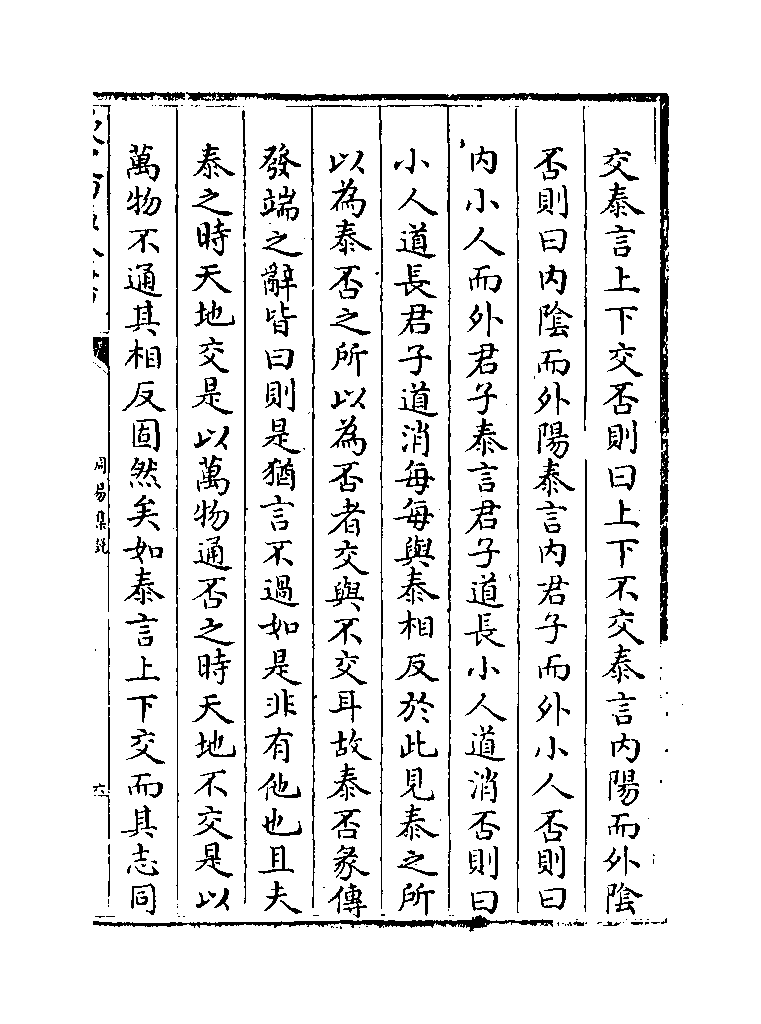 交泰言上下交否則曰上下不交泰言内陽而外陰
否則曰内陰而外陽泰言内君子而外小人否則曰
内小人而外君子泰言君子道長小人道消否則曰
小人道長君子道消每每與泰相反於此見泰之所
以為泰否之所以為否者交與不交耳故泰否彖傳
發端之辭皆曰則是猶言不過如是非有他也且夫
泰之時天地交是以萬物通否之時天地不交是以
萬物不通其相反固然矣如泰言上下交而其志同
周易集説
六